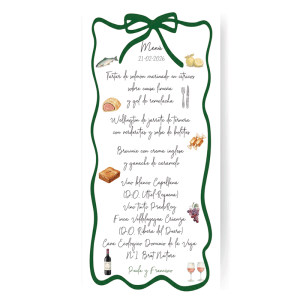 Menú
21-02-2026
Tartar de salmón marinado en cítricos
sobre causa limeña
y gel de remolacha
Wellington de jarrete de ternera
con verduritas y salsa de boletus
Brownie con crema inglesa
y ganache de caramelo
Vino blanco Capellana
(D.O. Utiel Requena)
Vino tinto PradoRey
Finca Valdelayegua Crianza
(D.O. Ribera del Duero)
Cava Ecológico Dominio de la Vega
Nº1 Brut Nature
Paula y Francisco